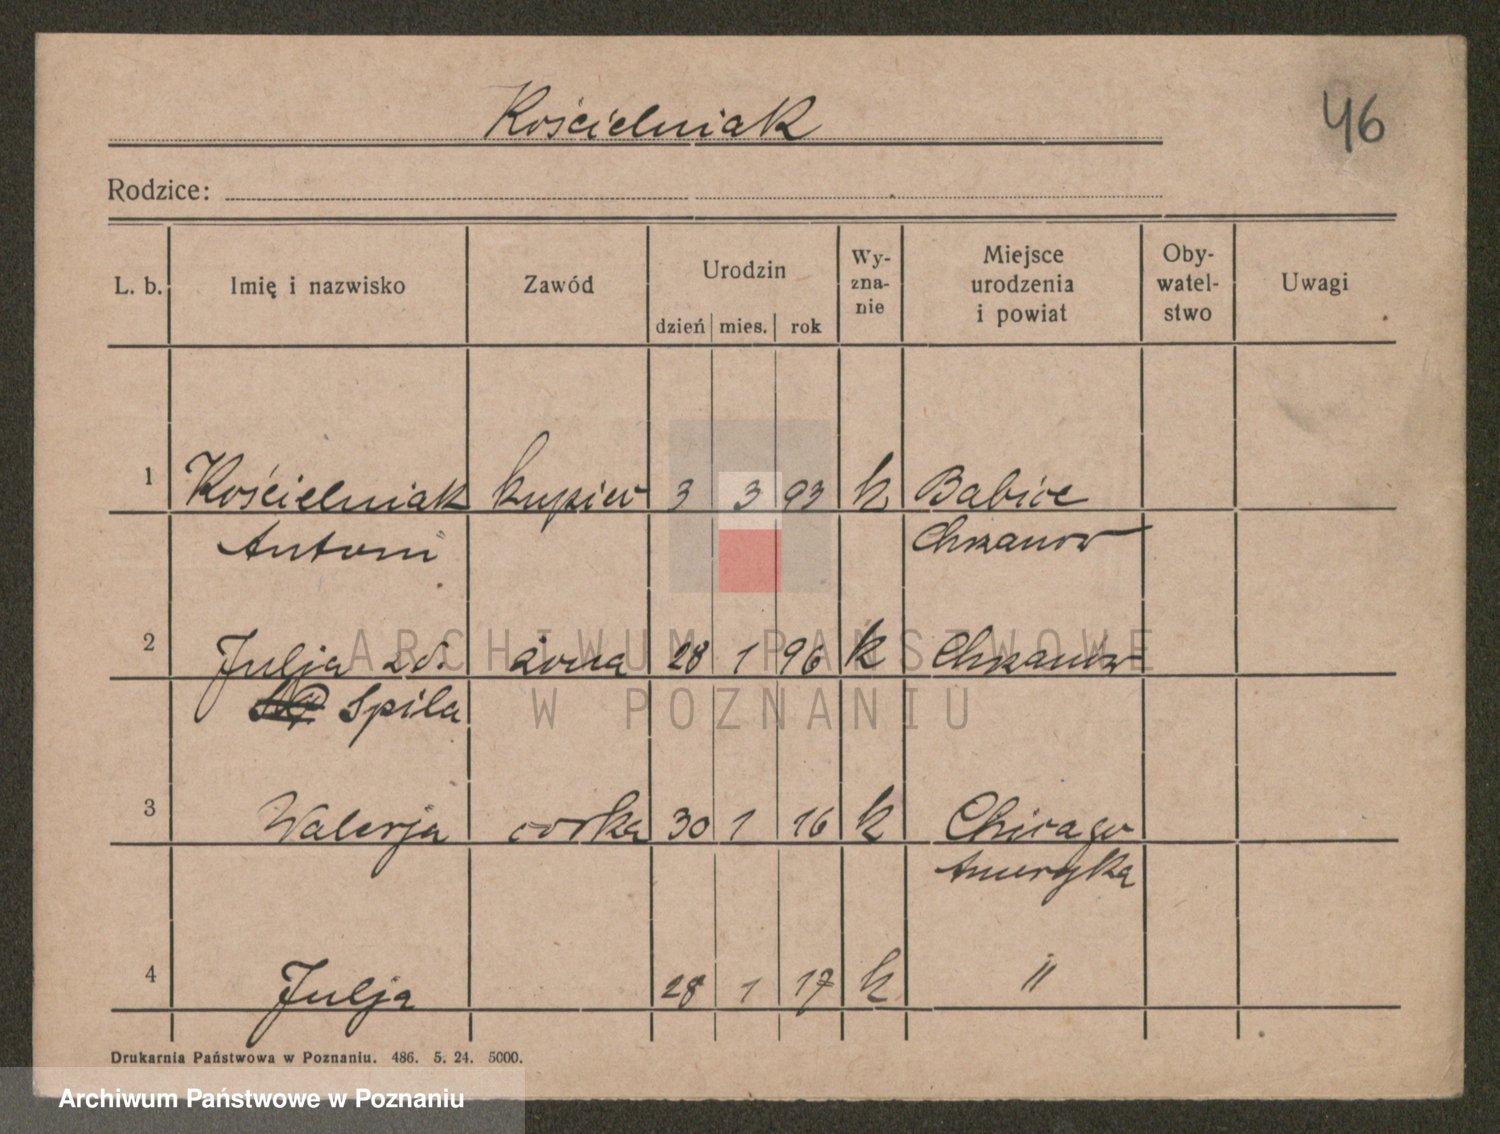 Kościelniak
46
Rodzice:
L. b. Imię i nazwisko Zawód Urodzin dzień mies. rok Wy-zna-nie Miejsce urodzenia i powiat Oby-watel-stwo Uwagi
1 Kościelniak kupiec 3 3 93 k Babice
Antoni Chrzanów
2 Julja zd. żona 28 1 96 k Chrzanów
Spila
3 Walerja córka 30 1 16 k Chicago
Ameryka
4 Julja 28 1 17 k "
Drukarnia Państwowa w Poznaniu. 486. 5. 24. 5000.
ARCHIWUM PAŃSTWOWE
W POZNANIU
Archiwum Państwowe w Poznaniu